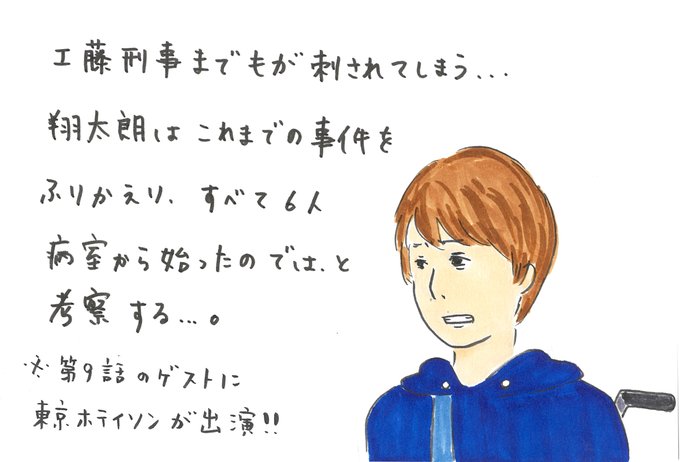 工藤刑事までもが刺されてしまう...
翔太朗は これまでの事件を
ふりかえり、すべて6人
病室から始ったのでは、と
考察する...。
※第9話のゲストに
東京ホテイソンが出演!!